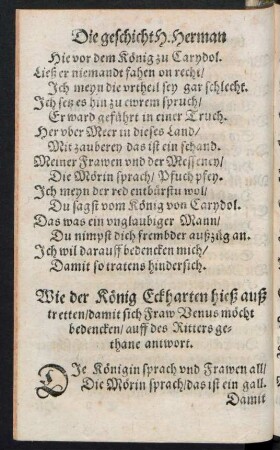 Die geschicht H. Herman
Hie vor dem König zu Carydol.
Ließ er niemandt fahen on recht/
Ich meyn die vrtheil sey gar schlecht.
Ich setz es hin zu ewrem spruch/
Er ward geführt in einer Truch.
Her vber Meer in dieses Land/
Mit zauberey das ist ein schand.
Meiner Frawen vnd der Messeney/
Die Mörin sprach/ Pfuch pfey.
Ich meyn der red entbürstu wol/
Du sagst vom König von Carydol.
Das was ein vnglaubiger Mann/
Du nimpst dich frembder außzüg an.
Ich wil darauff bedencken mich/
Damit so tratens hindersich.
Wie der König Eckharten hieß auß
tretten/damit sich Fraw Venus möcht
bedencken/ auff des Ritters ge-
thane antwort.
DIe Königin sprach vnd Frawen all/
Die Mörin sprach/das ist ein gall.
Damit